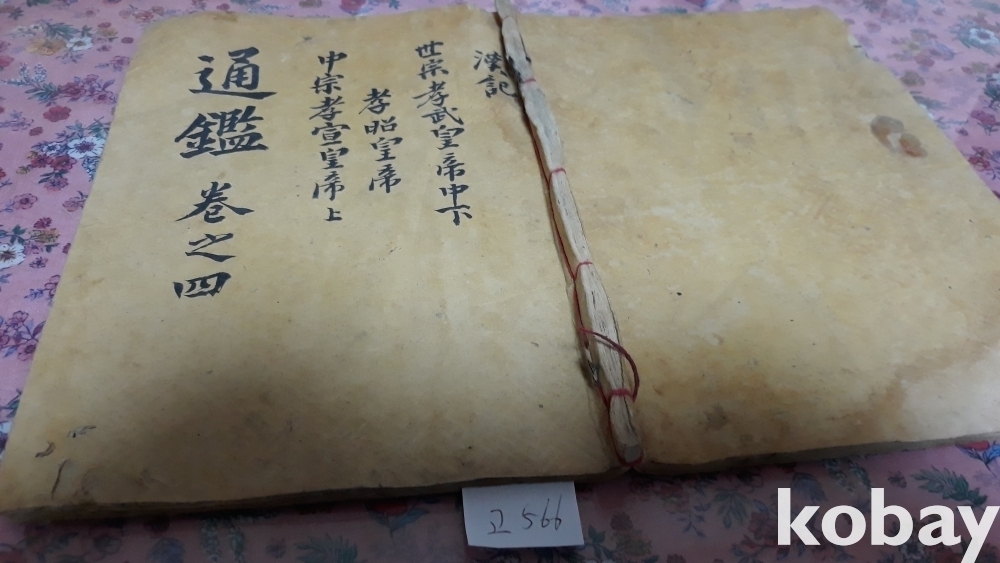 漢記
世宗孝武皇帝中下
孝昭皇帝
中宗孝宣皇帝上
通鑑 卷之四
고 566
kobay